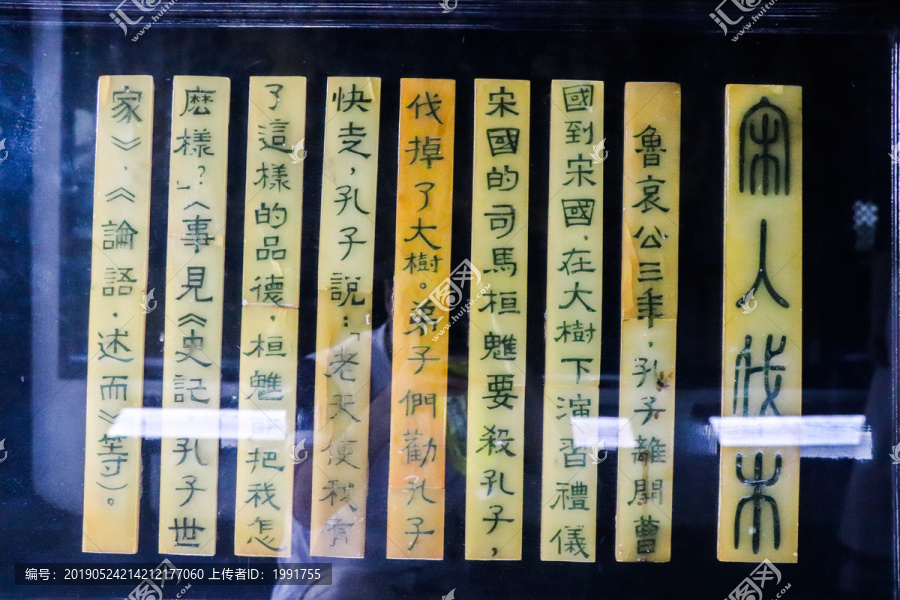 宋人伐木
魯哀公三年，孔子離開曹
國到宋國，在大樹下演習禮儀
宋國的司馬桓魋要殺孔子，
伐掉了大樹。弟子們勸孔子
快走，孔子說：「老天使我有
了這樣的品德，桓魋能把我怎
麽樣？」〈事見《史記·孔子世
家》，《論語·述而》等〉。
编号：20190524214212177060 上传者ID：1991755
汇图网
www.huitu.com